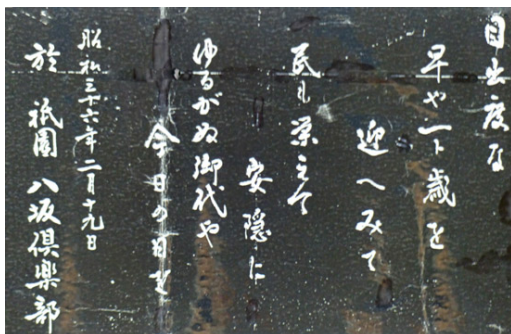 目出度な
早や一ト歳を
迎へみて
民も栄えて
安隠に
ゆるがぬ御代や
今日の日を
昭和三十六年二月十九日
於 祇園 八坂倶楽部